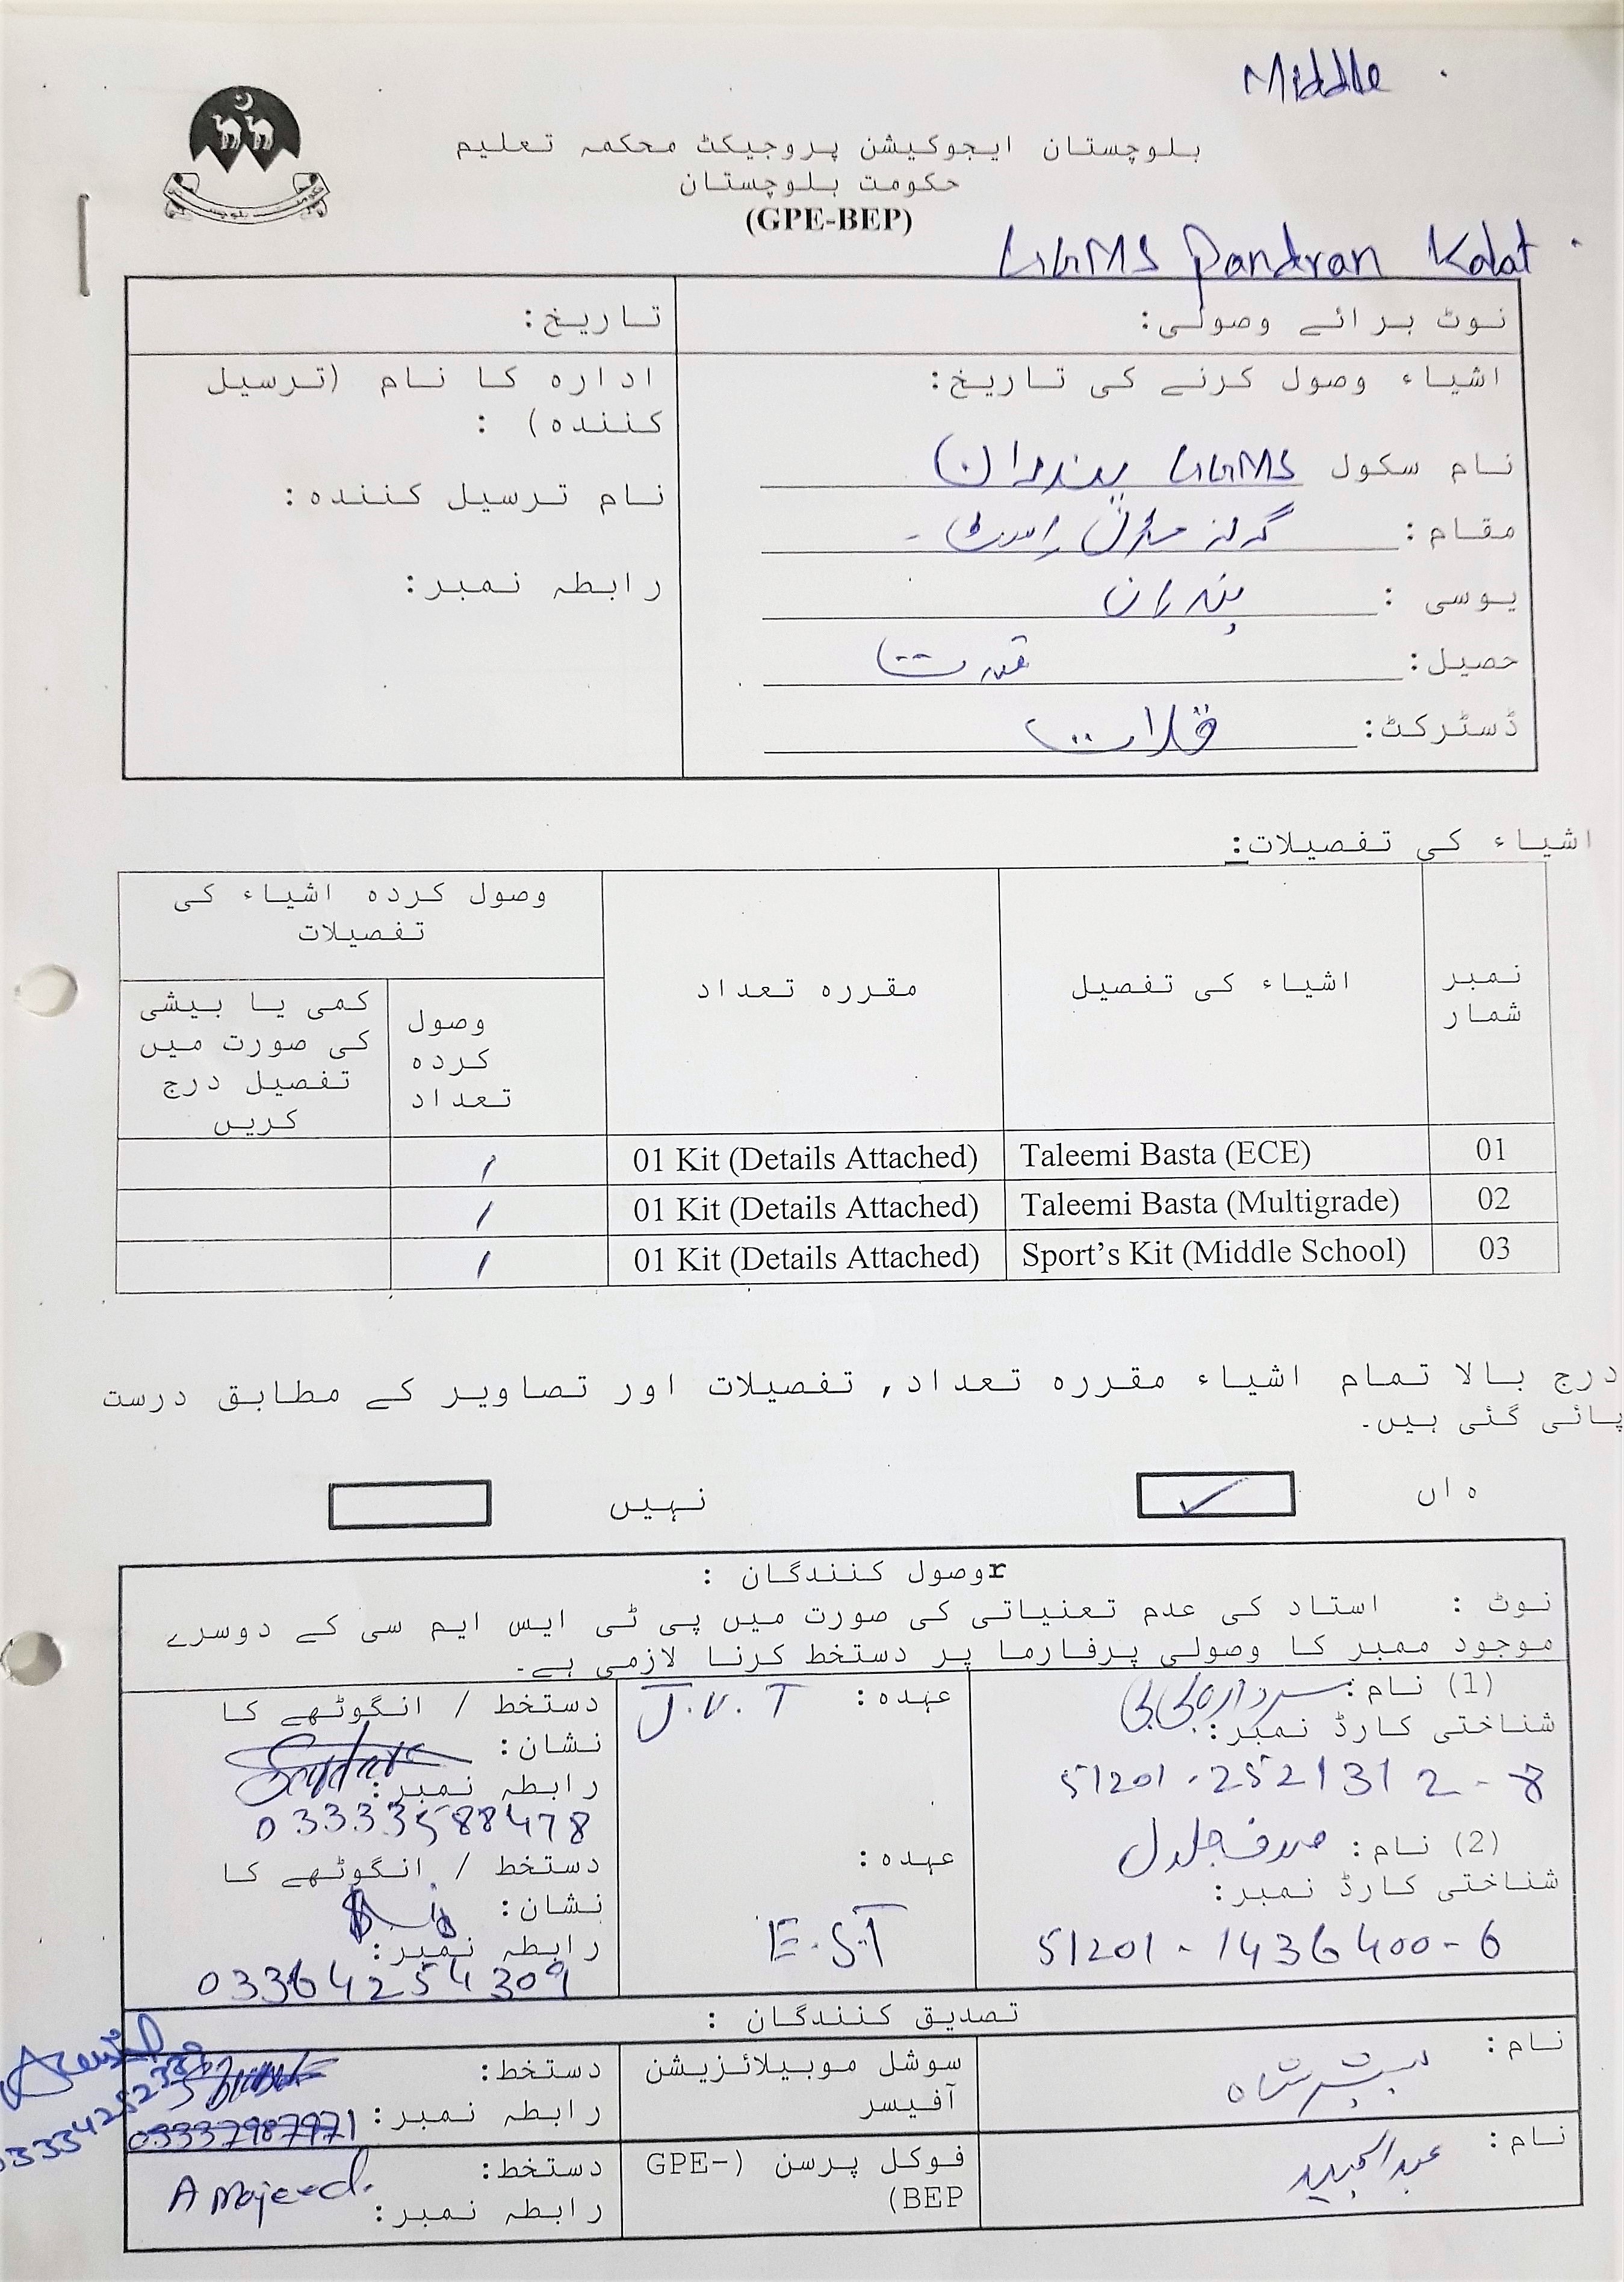 Middle
بلوچستان ایجوکیشن پروجیکٹ محکمہ تعلیم
حکومت بلوچستان
(GPE-BEP)
GGMS Pandran Kalat
نوٹ برائے وصولی:
تاریخ:
اشیاء وصول کرنے کی تاریخ:
نام سکول GGMS پندران
مقام: گرلز مڈل
یوسی : پندران
حصیل:
ڈسٹرکٹ: قلات
ادارہ کا نام (ترسیل
کنندہ) :
نام ترسیل کنندہ:
رابطہ نمبر:
اشیاء کی تفصیلات:
نمبر شمار
اشیاء کی تفصیل
مقررہ تعداد
وصول کردہ اشیاء کی
تفصیلات
وصول
کردہ
تعداد
کمی یا بیشی
کی صورت میں
تفصیل درج
کریں
01 Taleemi Basta (ECE) 01 Kit (Details Attached) 1
02 Taleemi Basta (Multigrade) 01 Kit (Details Attached) 1
03 Sport’s Kit (Middle School) 01 Kit (Details Attached) 1
درج بالا تمام اشیاء مقررہ تعداد, تفصیلات اور تصاویر کے مطابق درست
پائی گئی ہیں۔
ہ اں ✓
نہیں
rوصول کنندگان :
نوٹ : استاد کی عدم تعنیاتی کی صورت میں پی ٹی ایس ایم سی کے دوسرے
موجود ممبر کا وصولی پرفارما پر دستخط کرنا لازمی ہے۔
(1) نام: سردارہ بی بی
شناختی کارڈ نمبر:
51201-2521312-8
عہدہ: J.V.T
دستخط / انگوٹھے کا
نشان:
رابطہ نمبر:
03333588478
(2) نام:
شناختی کارڈ نمبر:
51201-1436400-6
عہدہ:
E.S.T
دستخط / انگوٹھے کا
نشان:
رابطہ نمبر:
03364254309
تصدیق کنندگان :
نام:
سوشل موبیلائزیشن
آفیسر
دستخط:
رابطہ نمبر: 03337987971
03334252339
نام: عبدالمجید
فوکل پرسن (GPE-
BEP)
دستخط: A Majeed.
رابطہ نمبر: